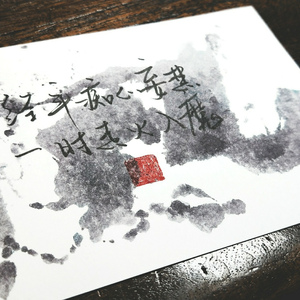 经年痴心妄想
一时走火入魔